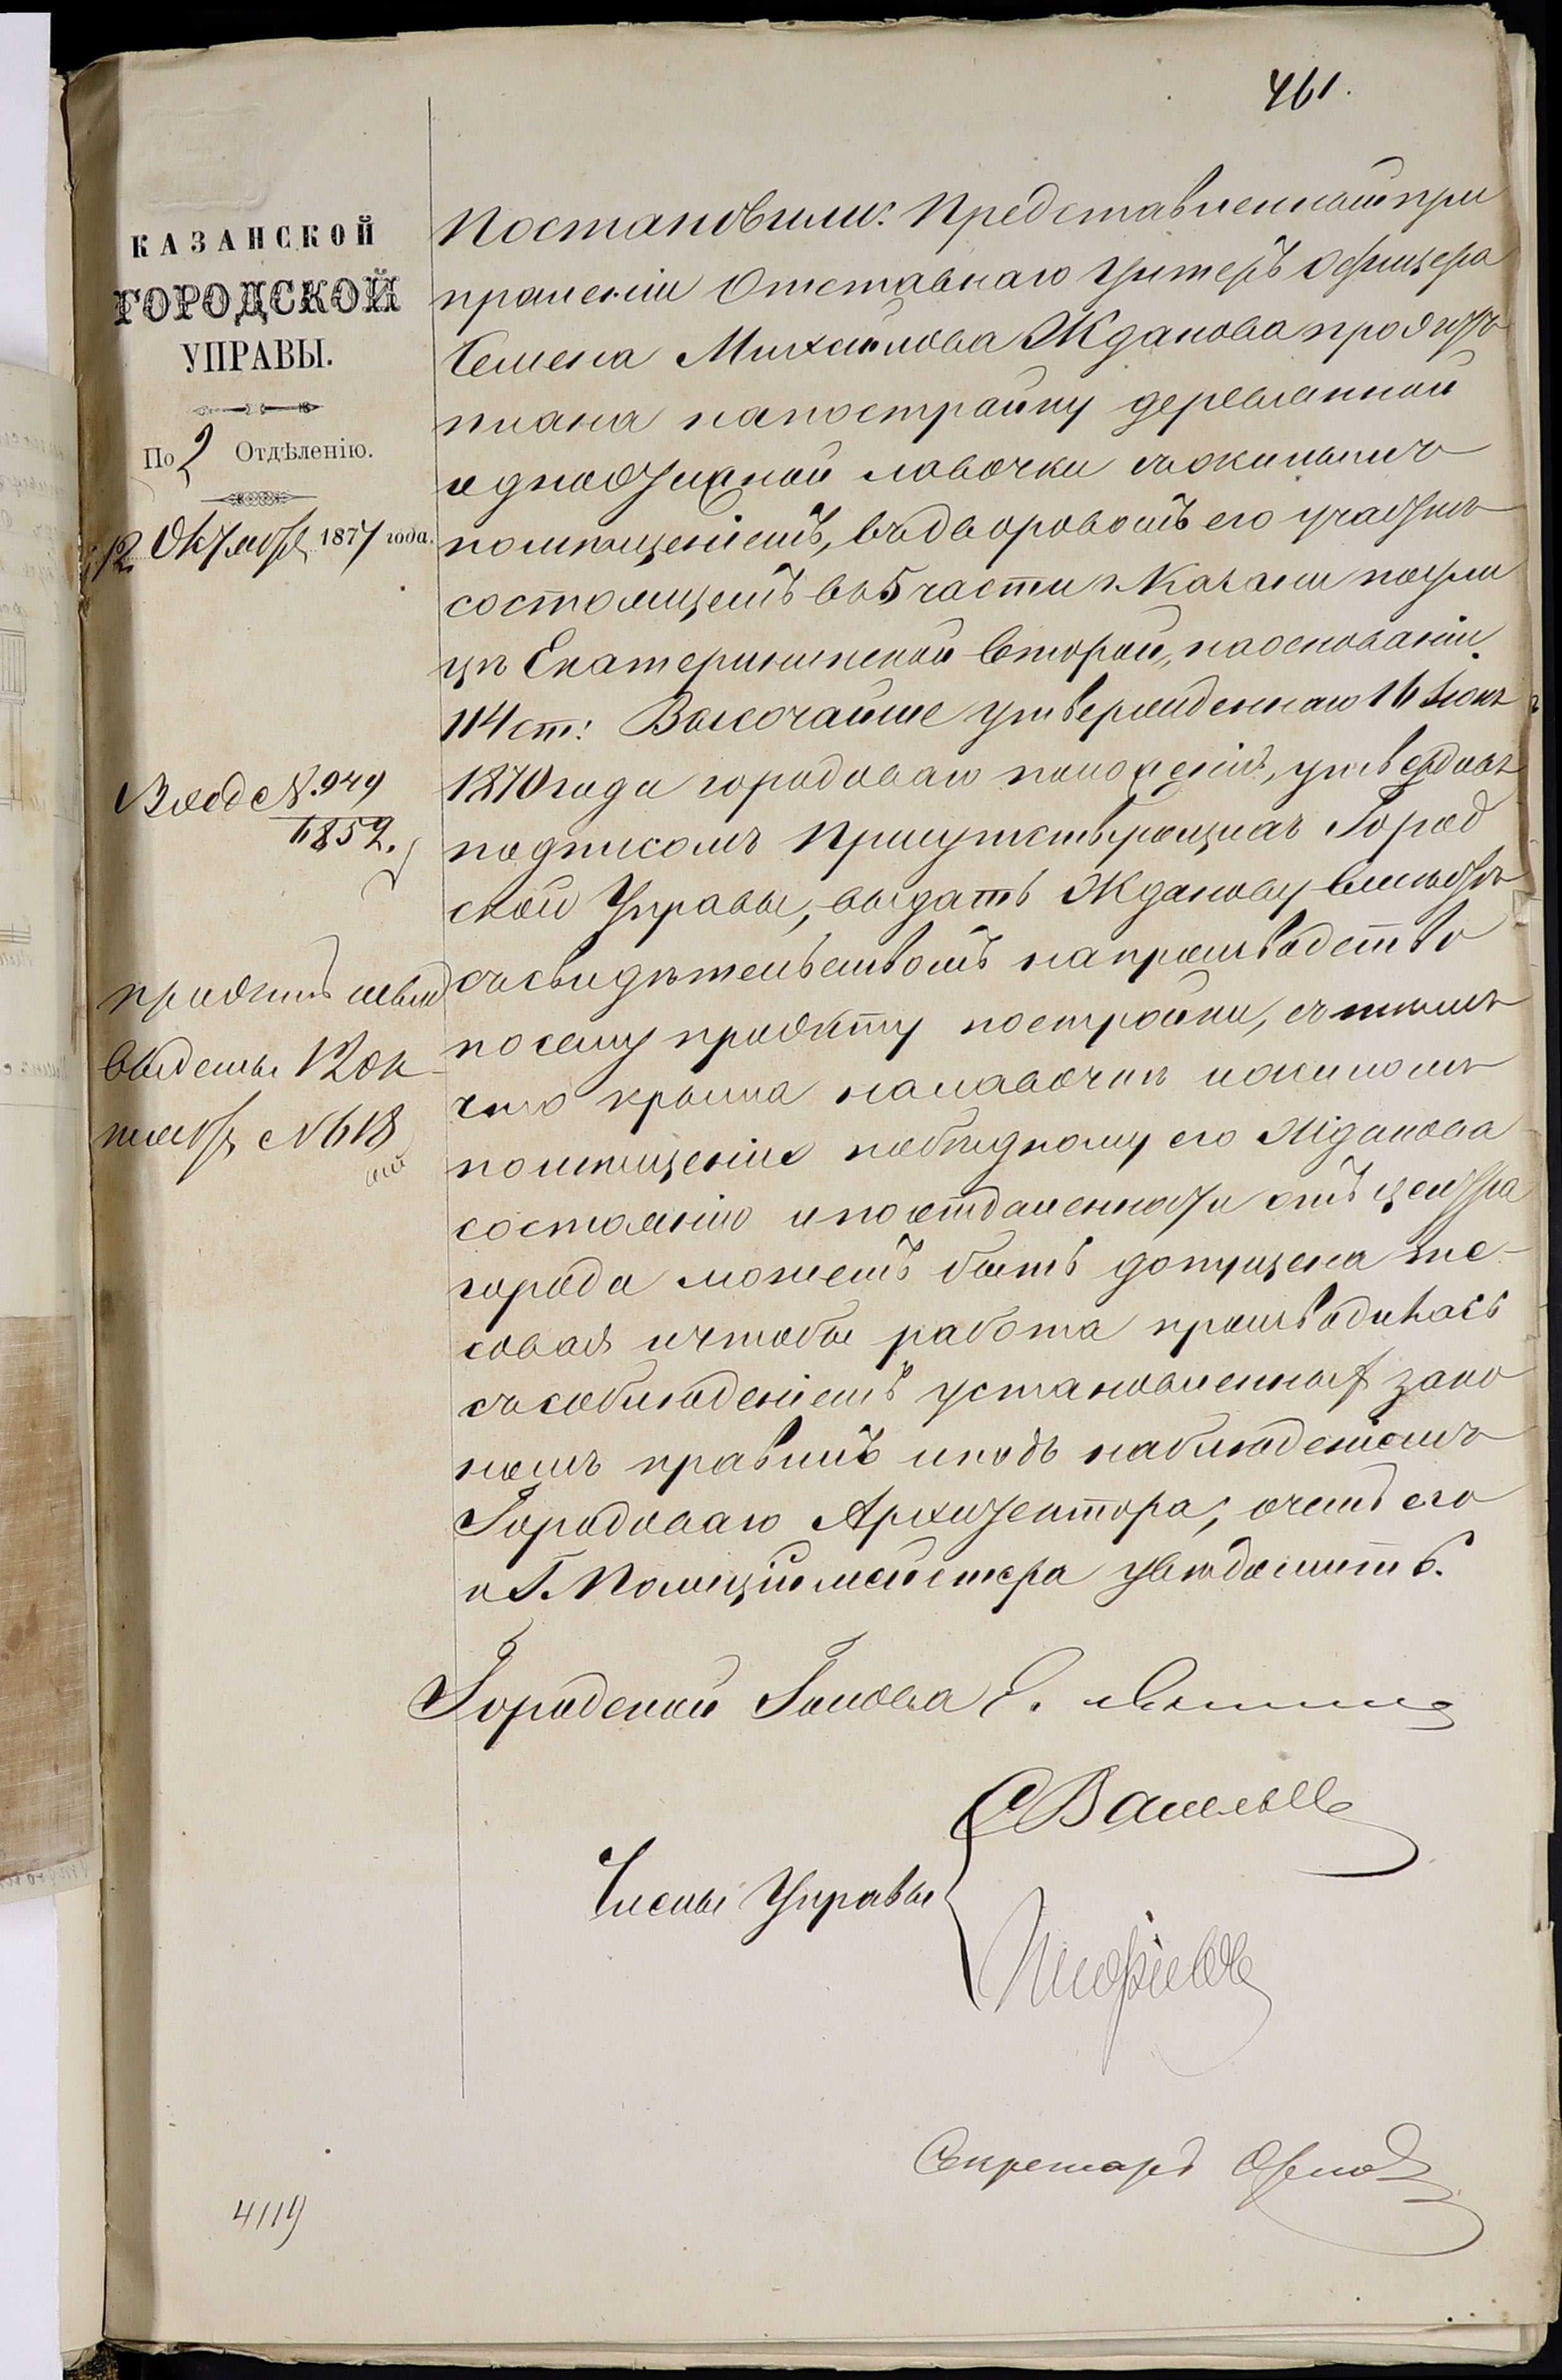 461.
КАЗАНСКОЙ
ГОРОДСКОЙ
УПРАВЫ.
По 2 Отдѣленію.
12 Октября 1877 года.
Вход № 949
6852.
проэктъ
выданы 12 ок-
тября № 618
Постановили: Представленный при
прошеніи Отставнаго Унтеръ Офицера
Семена Михайлова Жданова проэктъ
плана на постройку деревянной
одноэтажной лавочки съ жилымъ
помѣщеніемъ, въ дворовомъ его участкѣ
состоящемъ въ 5 части г. Казани по ули
цѣ Екатерининской второй, на основаніи
114 ст: Высочайше утвержденнаго 16 Іюня
1870 года городоваго положенія, утвердивъ
подписомъ Присутствующихъ Город
ской Управы, выдать Жданову вмѣстѣ
съ свидѣтельствомъ на производство
по сему проэкту постройки, съ тѣмъ
что крыша на лавочкѣ и жиломъ
помѣщеніи по бѣдному его Жданова
состоянію и по отдаленности отъ центра
города можетъ быть допущена те-
совая и чтобы работа производилась
съ соблюденіемъ установленныхъ зако
номъ правилъ и подъ наблюденіемъ
Городоваго Архитектора, о чемъ его
и Г. Полиціймейстера увѣдомить.
Городской Голова Е.
Члены Управы
Секретарь Орлов
4119